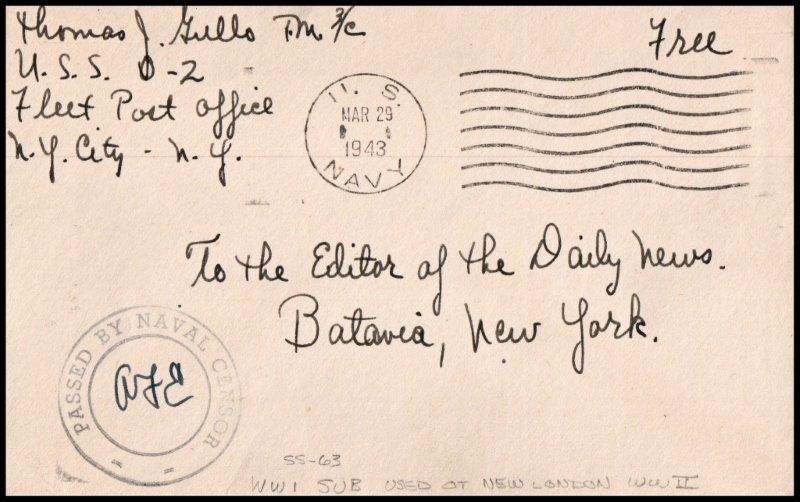 Thomas J. Gullo T.M. 3/c
U.S.S. O-2
Fleet Post Office
N.Y. City - N.Y.
Free
U. S.
MAR 29
1943
NAVY
To the Editor of the Daily News.
Batavia, New York.
PASSED BY NAVAL CENSOR
SS-63
WW1 SUB USED AT NEW LONDON WWII